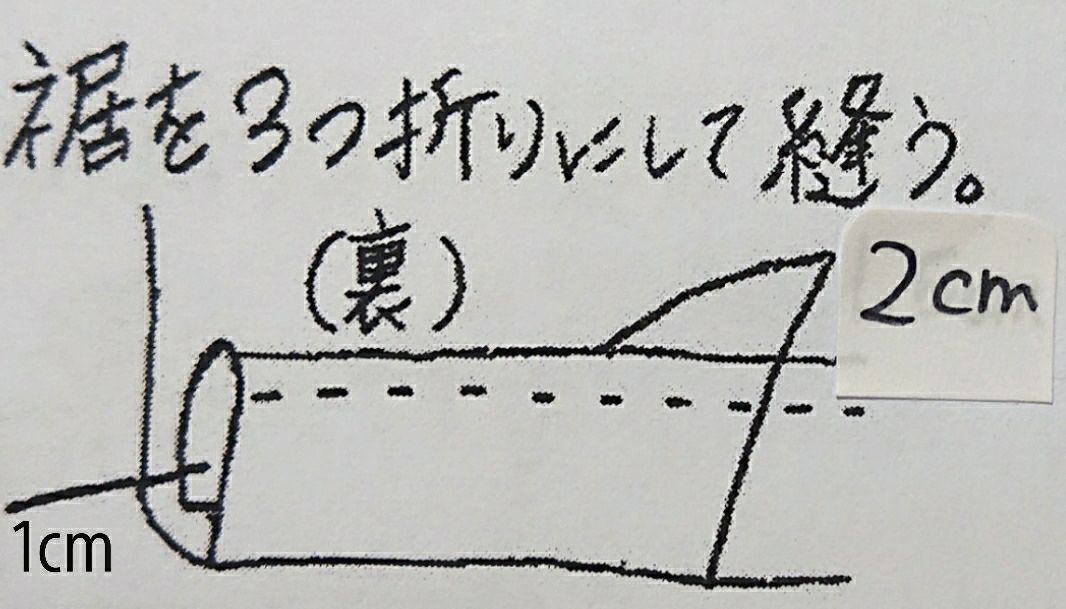 裾を3つ折りにして縫う。
(裏)
2cm
1cm